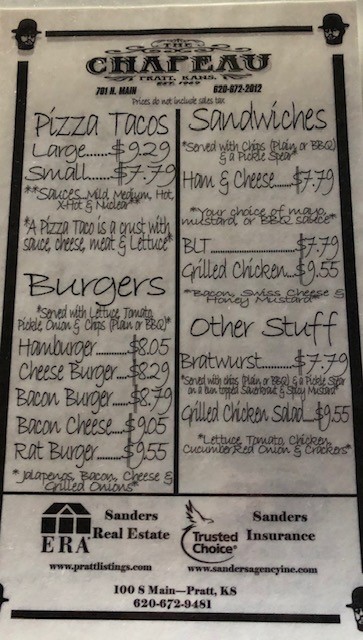 THE
CHAPEAU
PRATT, KANS.
701 N. MAIN 620-672-2012
Prices do not include sales tax
Pizza Tacos
Large......$9.29
Small......$7.79
**Sauces...Mild, Medium, Hot,
X-Hot & Nuclear*
*A Pizza Taco is a crust with
sauce, cheese, meat & Lettuce*
Burgers
*Served with Lettuce, Tomato,
Pickle, Onion & Chips (Plain or BBQ)*
Hamburger.........$8.05
Cheese Burger....$8.29
Bacon Burger.....$8.79
Bacon Cheese....$9.05
Rat Burger.........$9.55
*Jalapenos, Bacon, Cheese &
Grilled Onions*
Sandwiches
*Served with Chips (Plain or BBQ)
& a Pickle Spear*
Ham & Cheese.....$7.79
*Your choice of mayo,
mustard, or BBQ sauce*
BLT......................$7.79
Grilled Chicken...$9.55
*Bacon, Swiss Cheese &
Honey Mustard*
Other Stuff
Bratwurst.........$7.79
*Served with chips (Plain or BBQ) & a Pickle Spear
on a bun topped Sauerkraut & Spicy Mustard*
Grilled Chicken Salad...$9.55
*Lettuce, Tomato, Chicken,
Cucumber, Red Onion & Crackers*
ERA
Sanders
Real Estate
www.prattlistings.com
Trusted
Choice®
Sanders
Insurance
www.sandersagencyinc.com
100 S Main—Pratt, KS
620-672-9481